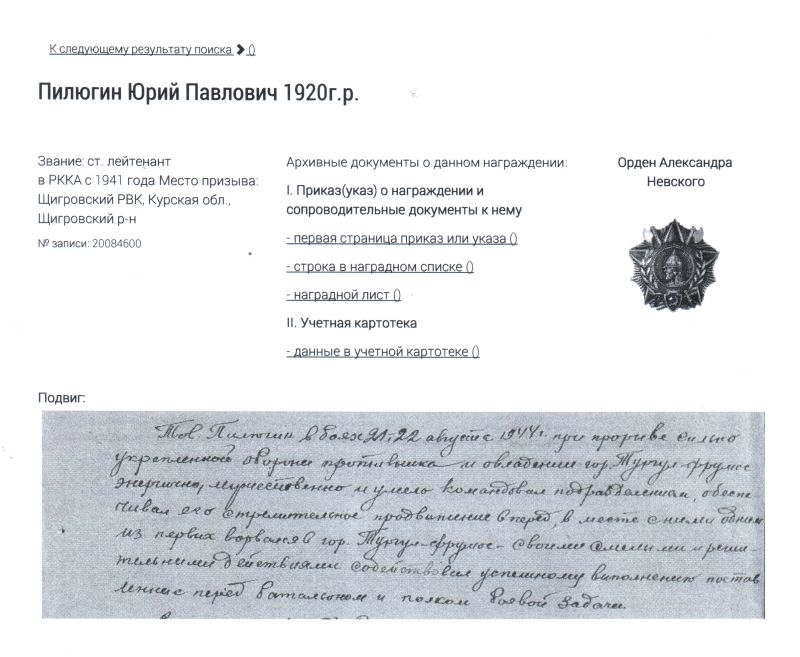 К следующему результату поиска ❯ ()
Пилюгин Юрий Павлович 1920г.р.
Звание: ст. лейтенант
в РККА с 1941 года Место призыва:
Щигровский РВК, Курская обл.,
Щигровский р-н
№ записи: 20084600
Архивные документы о данном награждении:
I. Приказ(указ) о награждении и
сопроводительные документы к нему
- первая страница приказ или указа ()
- строка в наградном списке ()
- наградной лист ()
II. Учетная картотека
- данные в учетной картотеке ()
Орден Александра
Невского
Подвиг:
Тов. Пилюгин в боях 21-22 августа 1944г. при прорыве сильно
укрепленной обороны противника и овладении гор. Тургул-фрумос
энергично, мужественно и умело командовал подразделением, обеспе-
чивал его стремительное продвижение вперед, в месте с ними одним
из первых ворвался в гор. Тургул-фрумос - своими смелыми и реши-
тельными действиями содействовал успешному выполнению постав
ленных перед батальоном и полком боевой задачи.